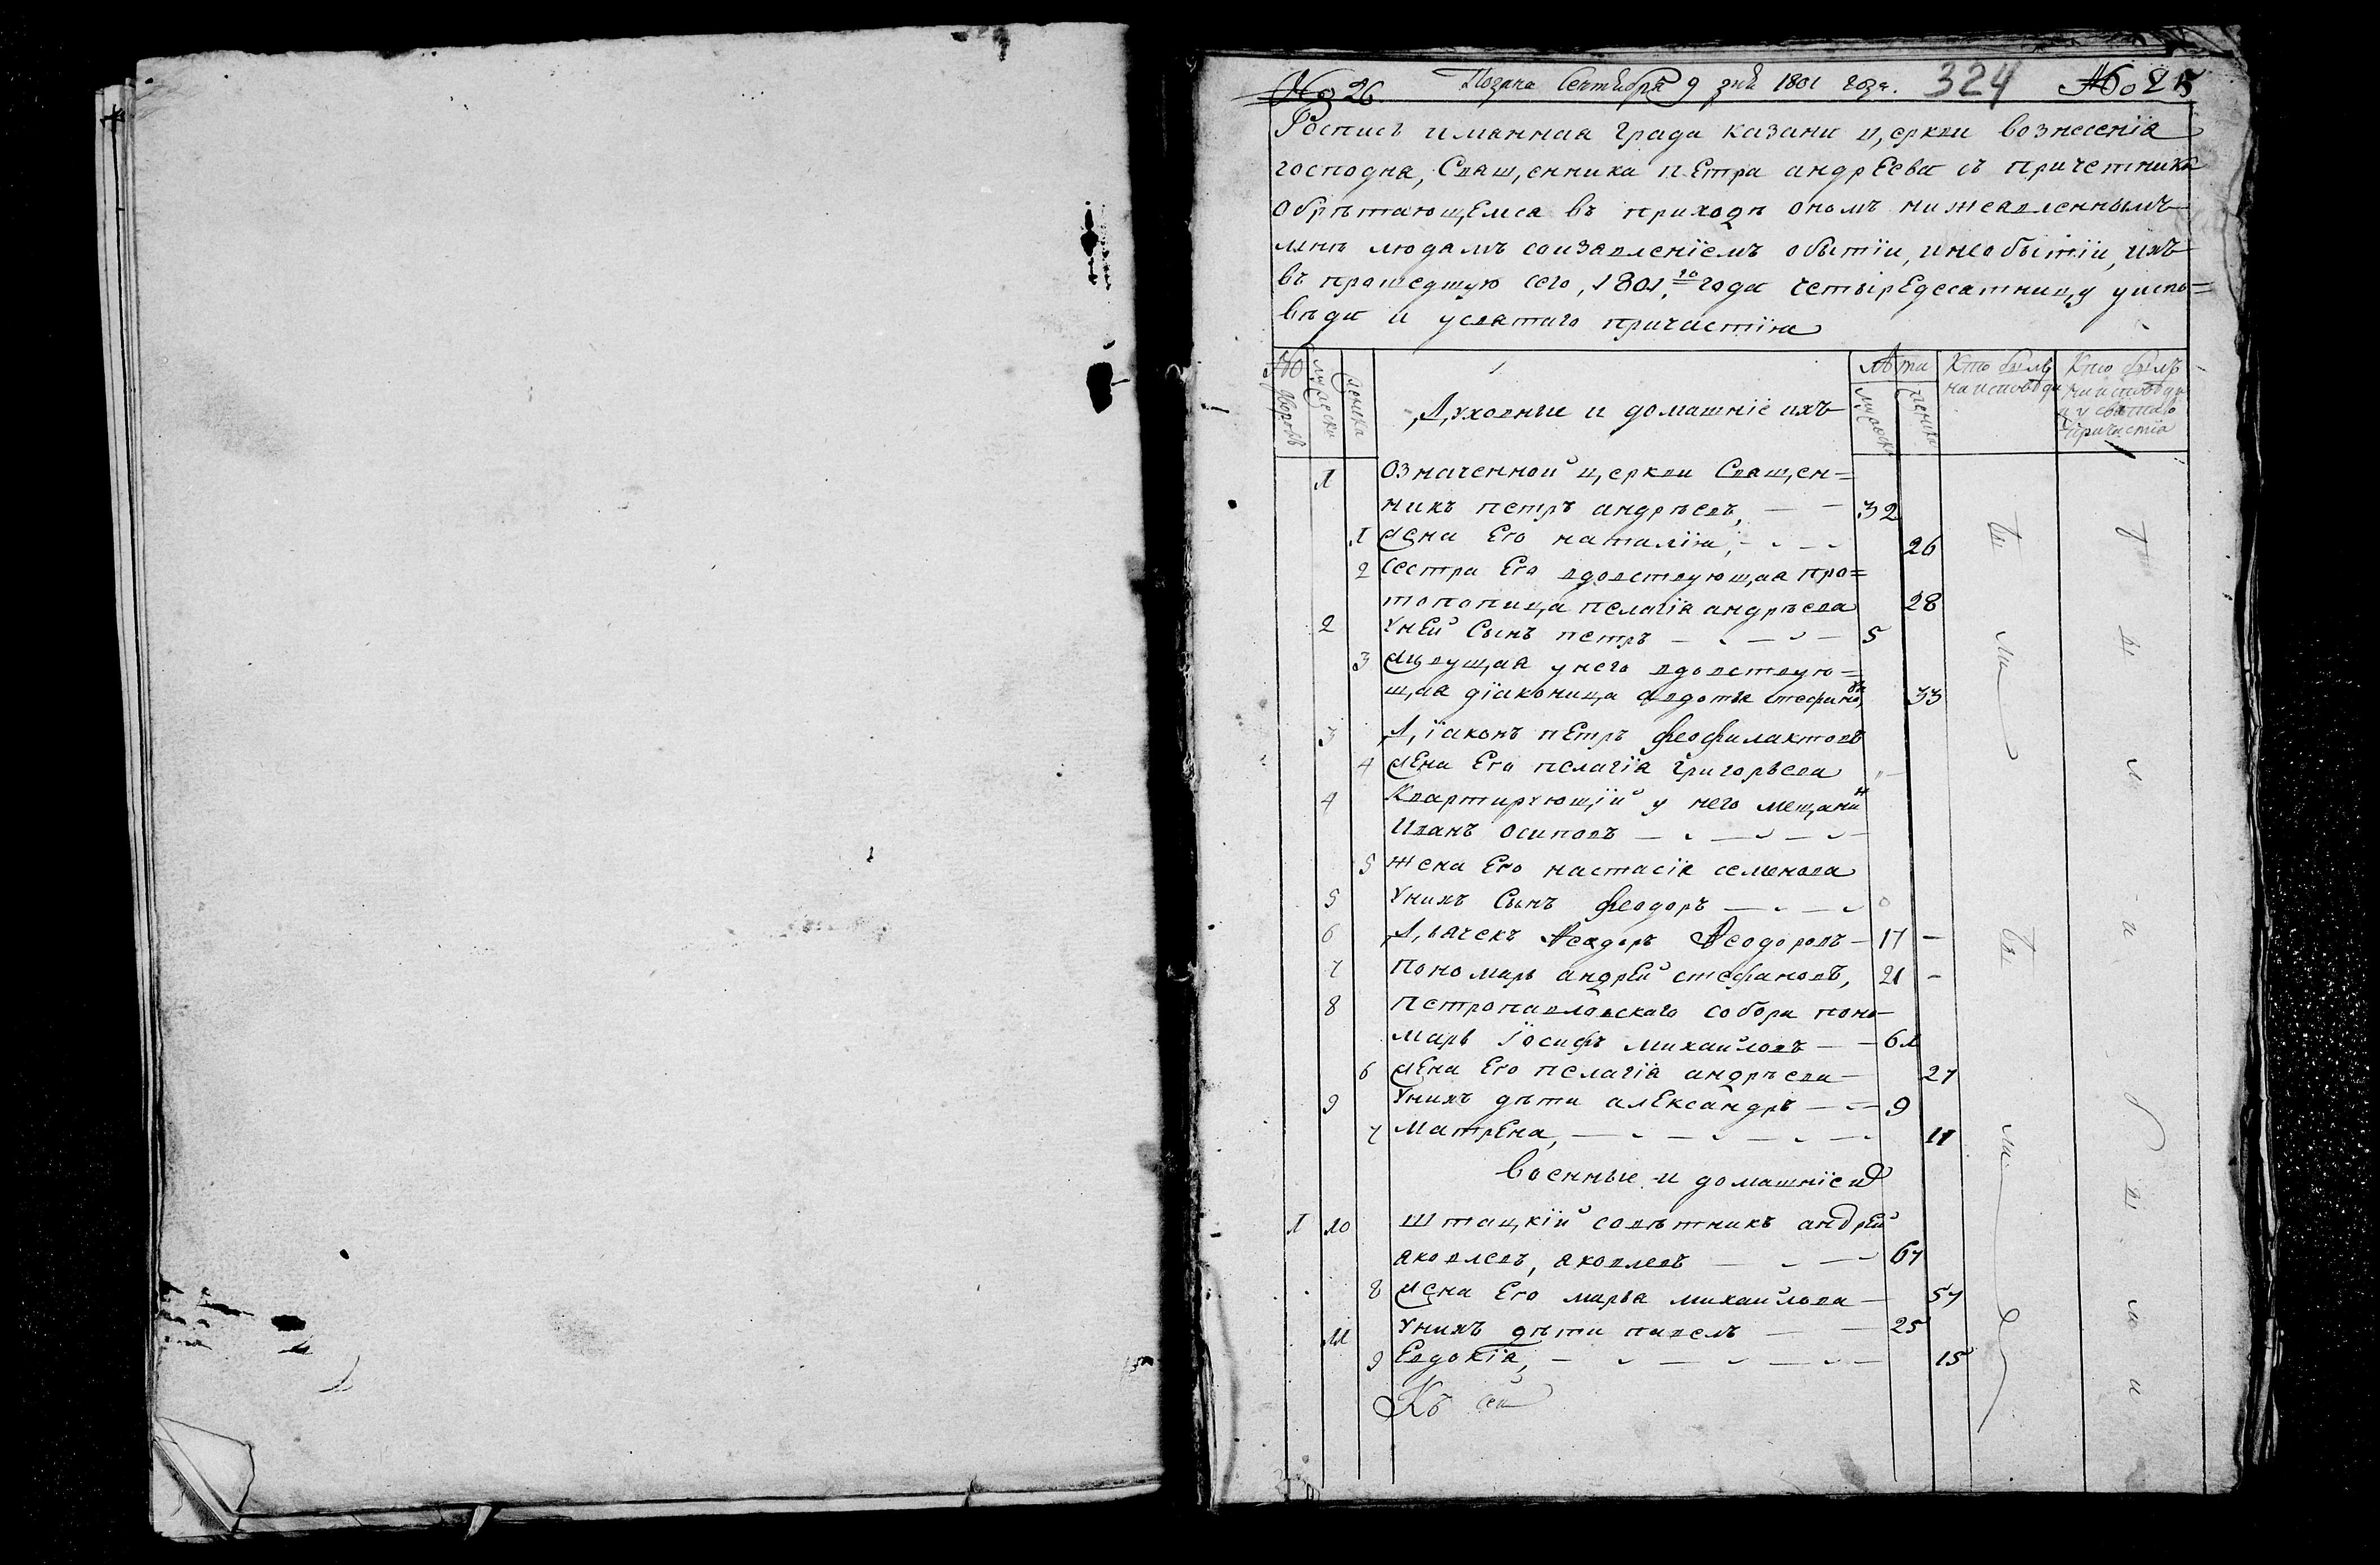 № 26. Подана Сентября 9 дня 1801 года. 324 № 25
Роспись иманная града казани церкви вознесенїя
господня, Священника пЕтра андрЕева съ причетники
обрѣтающЕмся въ приходѣ ономъ нижеявленнымъ
мнѣ людямъ соизъявленїемъ обытїи, инеобытїи, ихъ
въ прошедшую сего, 1801,го года четырЕдесятницу уиспо=
вѣди и усвятаго причастїя
№ дворовъ
мужеска
женска
Духовные и домашнїе ихъ
лѣта
мужеска
женска
Кто былъ
на исповѣди
Кто былъ
на исповѣди
и у святаго
причастїя
1 Означенной церкви Священ=
никъ петръ андрѣевъ, — — 32
1 жена Его наталїя, - - - 26
2 сестра Его вдовствующая про=
топопица пелагїя андрѣева 28
2 УнЕй Сынъ петръ — - — - — 5
3 живущая унего вдовствую=
щая дїаконица авдотья стефанова, 33
3 Дїаконъ пЕтръ феофилактовъ
4 жЕна Его пелагїя григорьева
4 Квартирующїй у него мещанинъ
Иванъ осиповъ — - — - — -
5 жена Его настасїя семенова
5 Унихъ Сынъ феодоръ — - — -
6 Дьячекъ Феодоръ Феодоровъ — 17 —
7 Пономарь андрЕй стефановъ, 21 —
8 Петропавловскаго собора поно-
марь Їосифъ михаиловъ — — 61
6 жЕна Его пелагїя андрѣева — 27
9 Унихъ дѣти алЕксандръ — - — 9
7 МатрЕна, — - — - — - — 11
Военные и домашнїе ихъ
1 10 Штацкїй совѣтникъ андрЕй
яковлевъ, яковлевъ — - — 67
8 жена Его марья михаилова — 57
11 Унихъ дѣти павелъ — — 25
9 Евдокїя, — - — - — - — 15
Къ сей
бы
ли
бы
ли
б
ы
л
и
б
ы
л
и